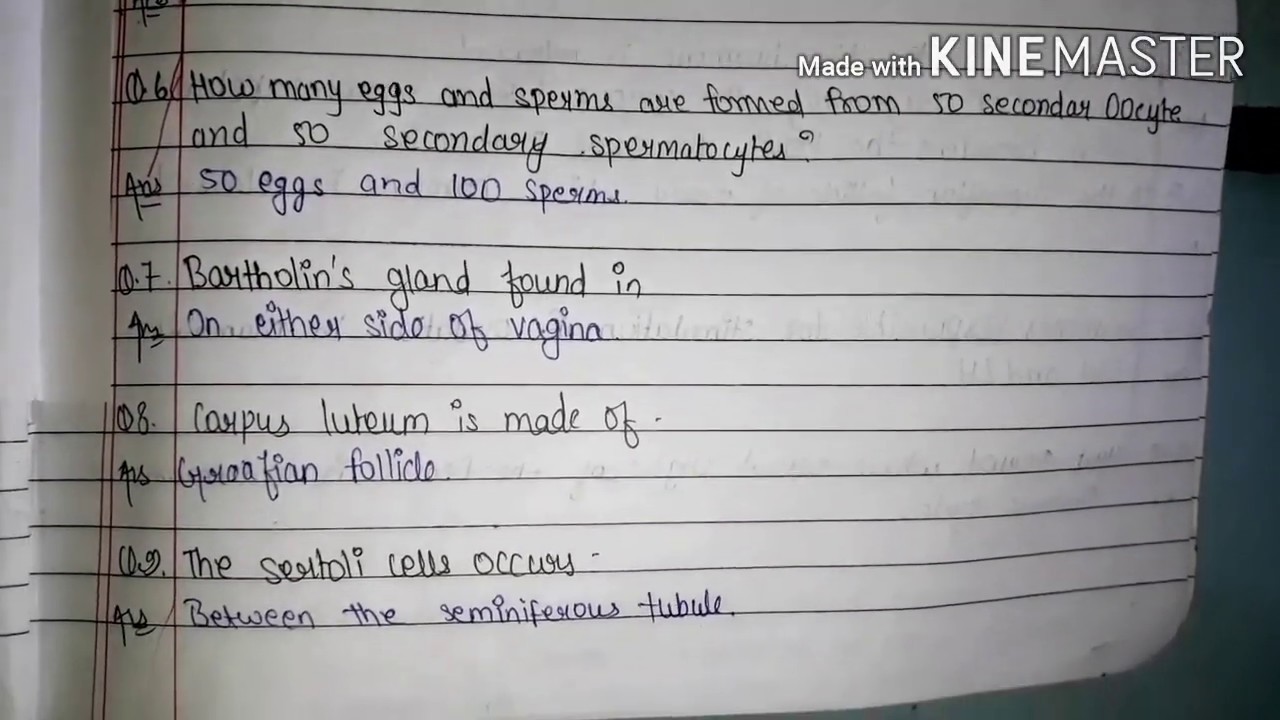 Made with KINEMASTER
Q.6 How many eggs and sperms are formed from 50 secondar Oocyte
and 50 secondary spermatocytes?
Ans 50 eggs and 100 sperms.
Q.7. Bartholin's gland found in
Ans On either side of vagina.
Q8. Carpus luteum is made of -
Ans Graafian follicle.
Q.9. The sertoli cells occurs -
Ans Between the seminiferous tubule.